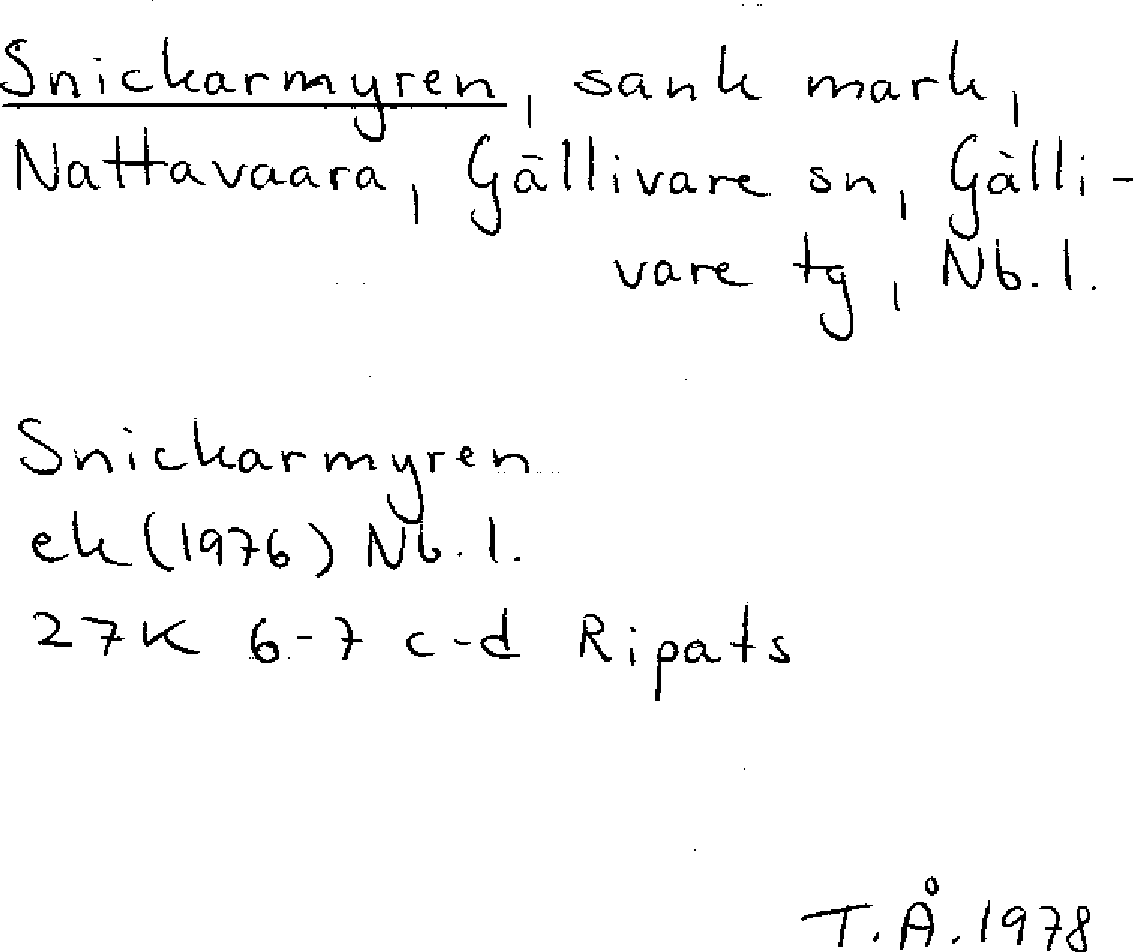 Snickarmyren, sank mark,
Nattavaara, Gällivare sn, Gälli-
vare tg, Nb. l.
Snickarmyren
ek (1976) Nb. l.
27K 6-7 c-d Ripats
T.Å. 1978